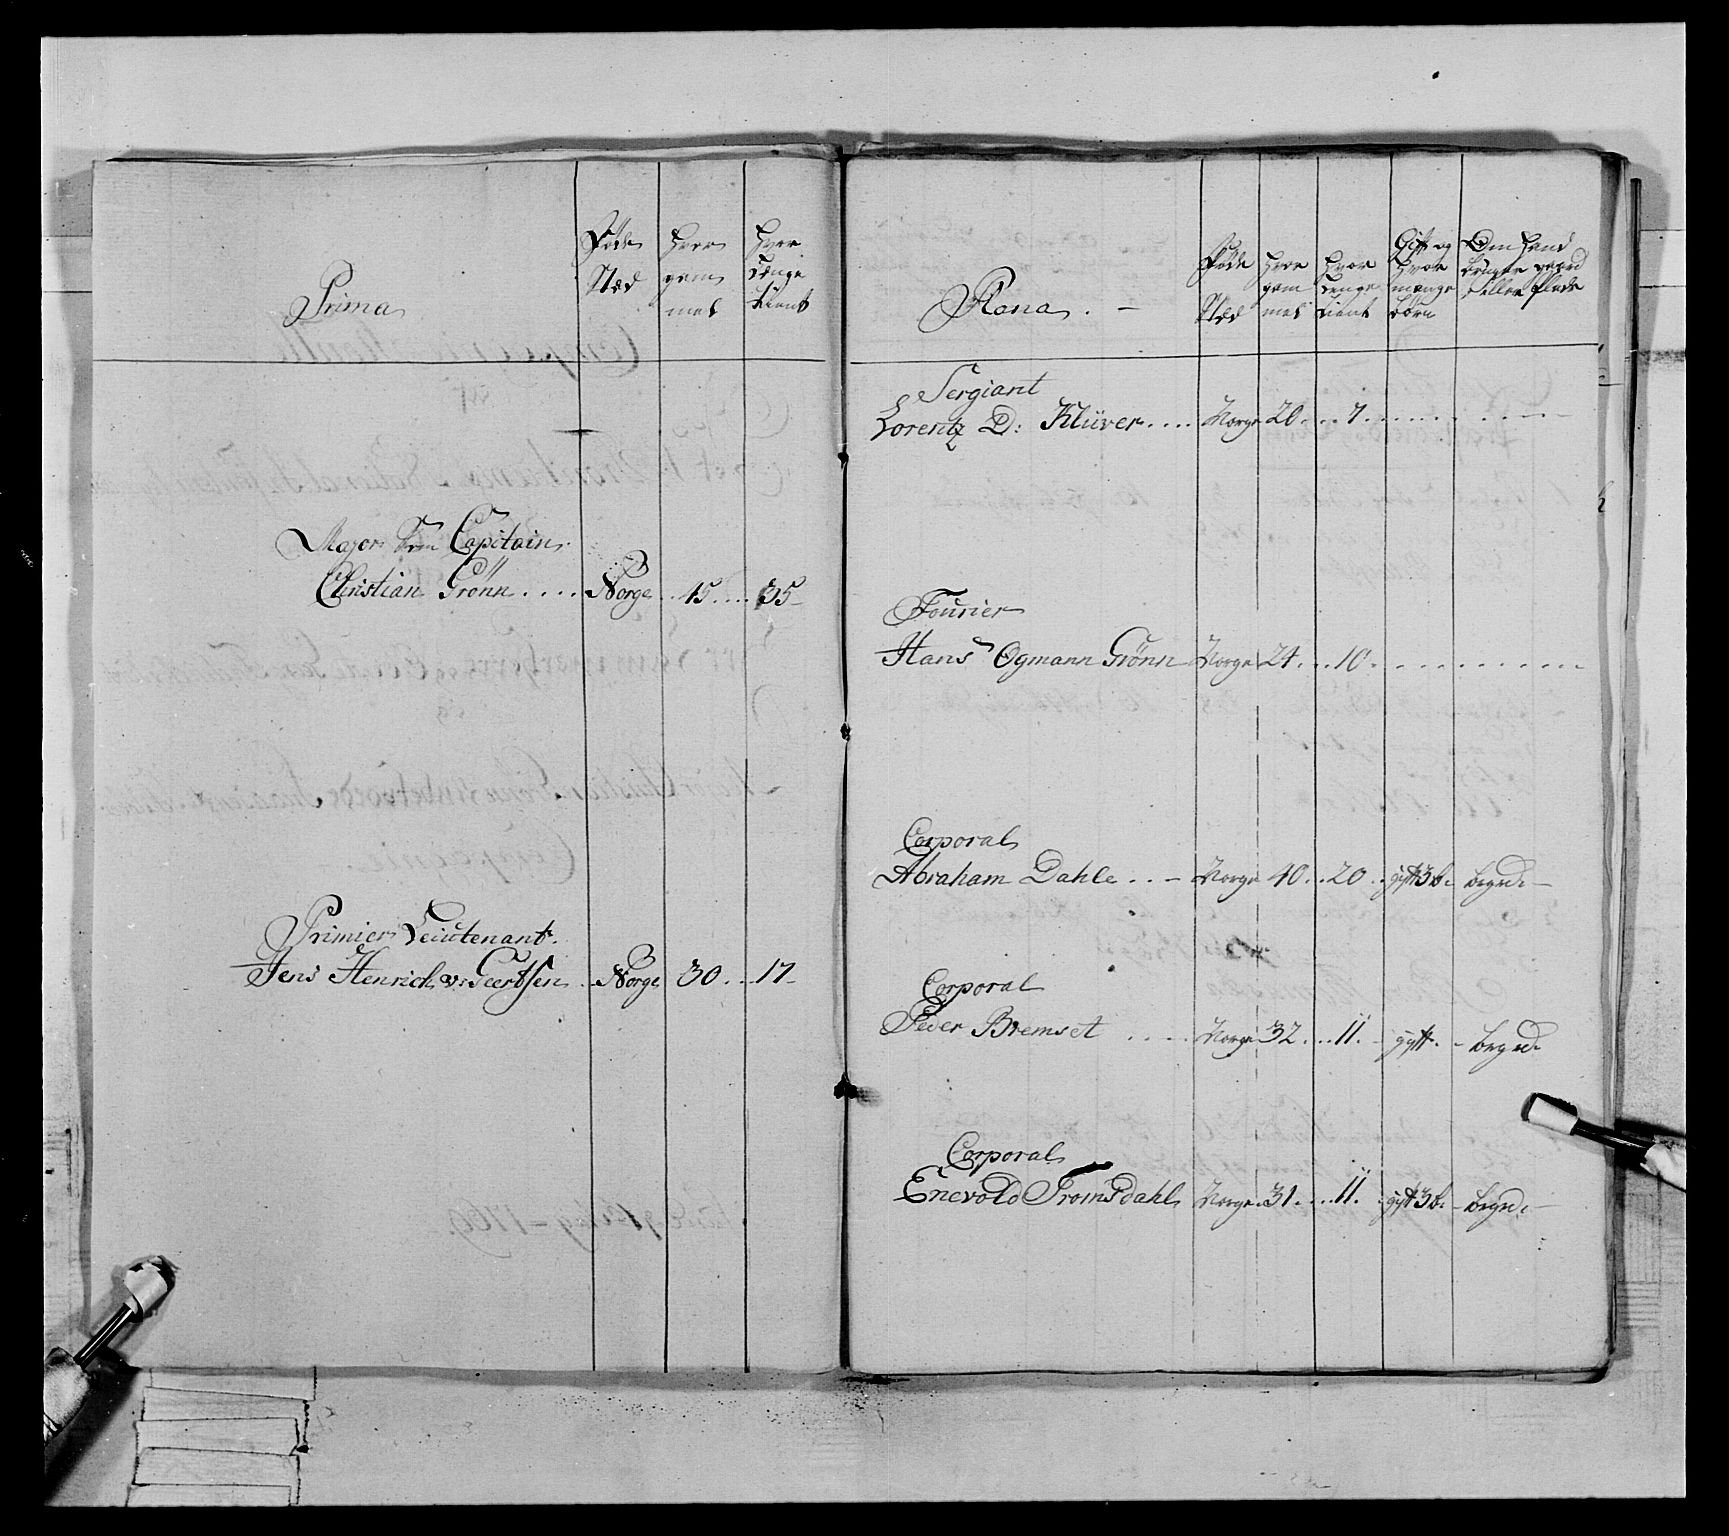 Prima
Føde Sted
Hvor gam mel
Hvor Længe tient
Major Som Capitain
Christian Grönn .... Norge .. 45 .... 35
Primier Leiutenant
Jens Henrich v: Geertsen .. Norge 30 .. 17
Plana . -
Føde Sted
Hvor gam mel
Hvor Lenge tient
Gift og Hvor mange børn
Den Hand bruger eller
Sergiant
Lorentz D: Klüver .... Norge 20 ... 7
Fourier
Hans Ogmann Grönn Norge 24 ... 10
Corporal
Abraham Dahle .. - Norge 40 .. 20 .. gift 3 b:
Corporal
Peder Bremset .... Norge 32 ... 11. - gift. -
Corporal
Enevold Tromsdahl Norge 31 .... 11. gift 3 b: